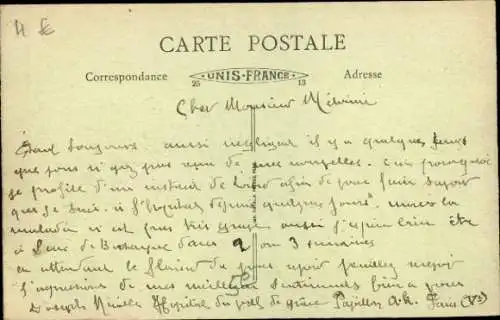 CARTE POSTALE
Correspondance UNIS-FRANCE Adresse
25 13
Cher Monsieur
toujours aussi négligent il y a quelques jours
que vous n'avez pas reçu de mes nouvelles. c'est pourquoi
je profite d'un instant de afin de vous faire savoir
que je suis à l'hopital depuis quelques jours. mais la
maladie n'est pas très grave aussi j'espère bien être
à de dans 2 ou 3 semaines
en attendant le plaisir de vous revoir veuillez recevoir
l'expression de mes meilleurs sentiments bien à vous
Joseph Hopital du val de grâce Papillon Paris (Ve)